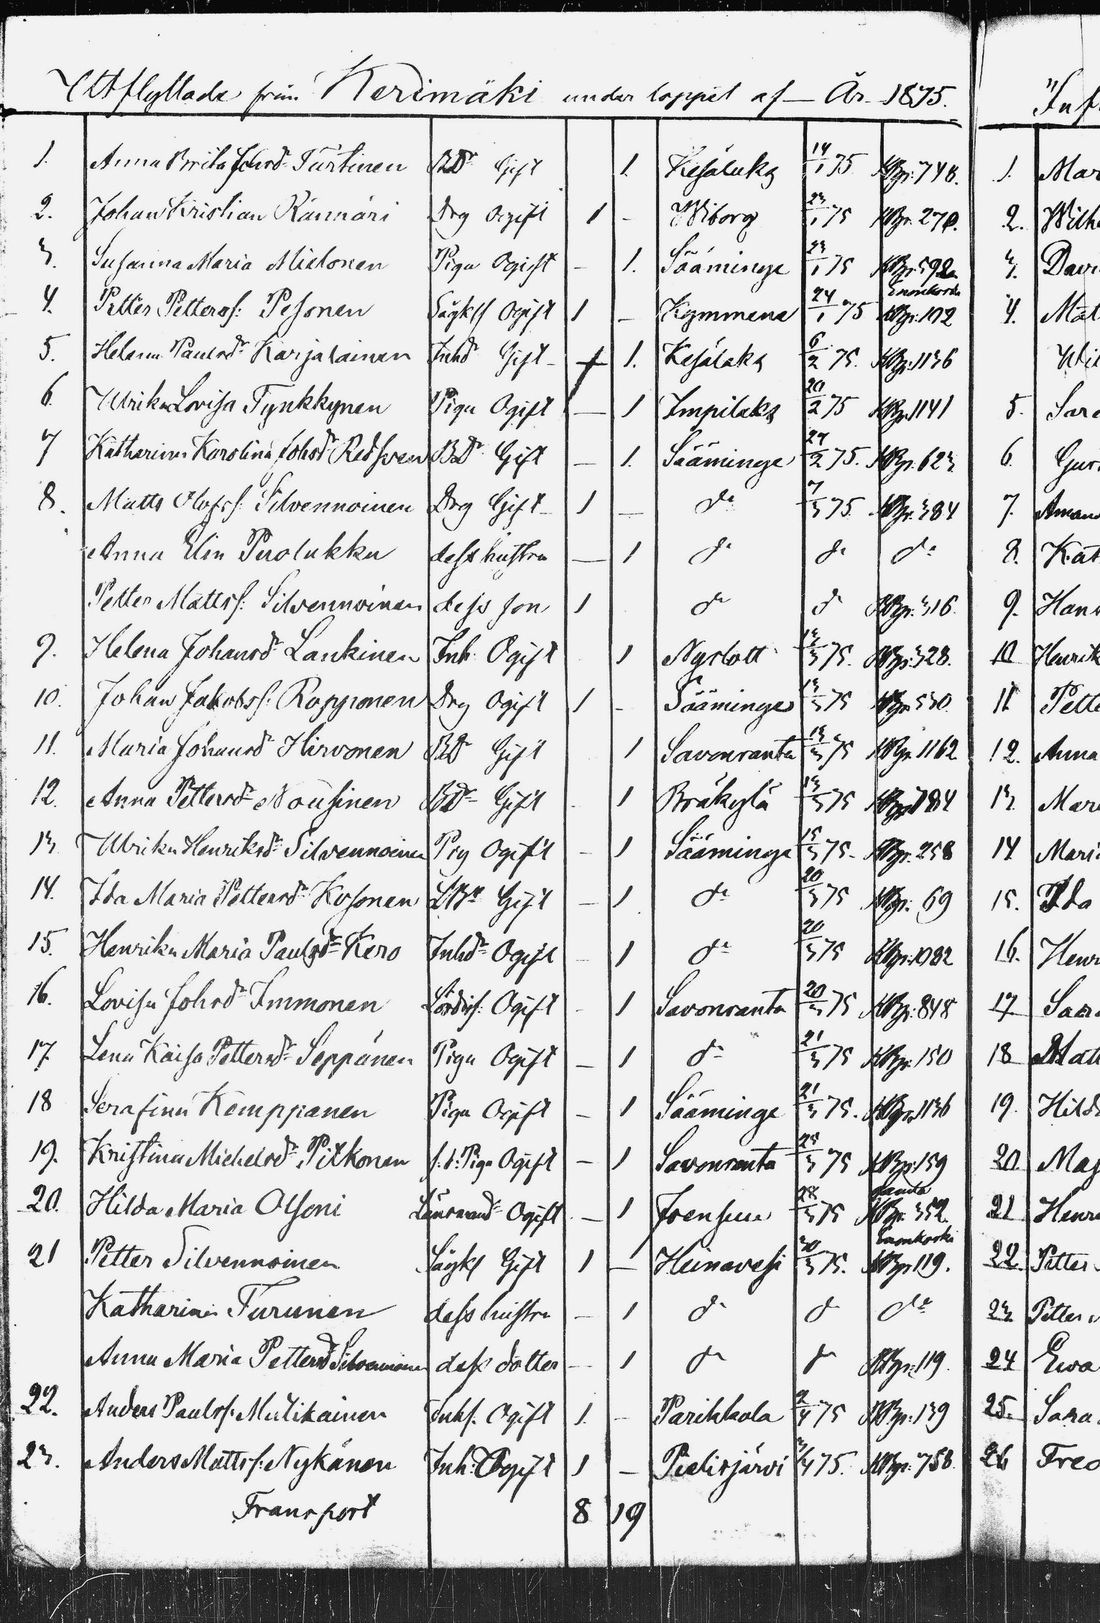 Utflyttade från Kerimäki under loppet af År 1875.
1. Anna Brita Johsd. Turtinen BD. Gift 1. Kesälaks 14/1 75 KBpr. 748.
2. Johan Kristian Rännäri Drg Ogift 1 - Wiborg 23/1 75 KBpr. 270.
3. Susanna Maria Mielonen Piga Ogift - 1. Sääminge 23/1 75 KBpr 592
4. Petter Petterss. Pesonen Ogift 1 - Kymmene 24/1 75 Enonkoski KBpr. 102
5. Helena Paulsdr. Karjalainen Inhd Gift - 1. Kesälaks 6/2 75. KBpr. 1136
6. Ulrika Lovisa Tynkkynen Piga Ogift - 1 Impilaks 20/2 75 KBpr 1141
7 Katharina Karolina Johsdr. Redsven BD. Gift - 1. Sääminge 27/2 75. KBpr. 623
8. Matts Olofss. Silvennoinen Drg Gift 1 - do 7/3 75 KBpr. 384
Anna Elin Puolukka dess hustru - 1 do do do
Petter Mattss. Silvennoinen dess son 1 do do KBpr. 316.
9. Helena Johansdr. Lankinen Inh. Ogift 1 Nyslott 13/3 75. KBpr. 328.
10. Johan Jakobss. Ropponen Drg Ogift 1 - Sääminge 13/3 75 KBpr. 530.
11. Maria Johansdr Hirvonen BD Gift 1 Savonranta 13/3 75 KBpr. 1162
12. Anna Pettersdr Nousinen BD. Gift - 1 Bräkylä 13/3 75 KBpr. 784
13. Ulrika Henriksdr. Silvennoinen Pig Ogift - 1 Sääminge 15/3 75. KBpr. 258
14. Ida Maria Pettersdr Kosonen Gift - 1 do 20/3 75 KBpr. 69
15. Henrika Maria Paulsdr. Kero Inhdr Ogift - 1 do 20/3 75 KBpr. 1082
16. Lovisa Johsdr Immonen Ogift - 1 Savonranta 20/3 75 KBpr. 848
17. Lena Kaisa Pettersdr. Seppänen Piga Ogift - 1 do 21/3 75 KBpr. 150
18 Serafina Kemppanen Piga Ogift - 1 Sääminge 21/3 75. KBpr. 1136
19. Kristina Michelsdr. Pitkonen Piga Ogift - 1 Savonranta 23/3 75 KBpr. 159
20. Hilda Maria Olsoni Ogift - 1 Joensuu 28/3 75 KBpr. 352.
21 Petter Silvennoinen Gift 1 - Heinavesi 30/3 75. Enonkoski KBpr. 119.
Katharina Turunen dess hustru - 1 do do do
Anna Maria Pettersdr Silvennoinen dess dotter - 1 do do KBpr. 119.
22. Anders Paulss. Mulikainen Inhs. Ogift 1. - Parikkala 2/4 75 KBpr. 139
23. Anders Mattss. Nykänen Inh. Ogift 1 - Pielisjärvi 3/4 75. KBpr. 758.
Transport 8 19
"Inf
1. Mar
2. Wilh
3. Davi
4. Mat
Wil
5. Sar
6. Gus
7. Aman
8. Kat
9. Han
10 Henrik
11 Pette
12. Anna
13. Mar
14 Mari
15. Ida
16. Henr
17 Sar
18 Mat
19. Hild
20 Mag
21 Henr
22. Petter
23. Petter
24 Ewa
25. Sara
26 Fred